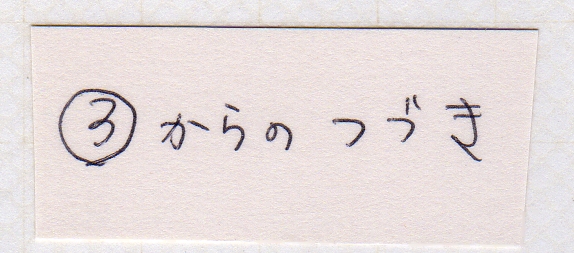 ③からのつづき